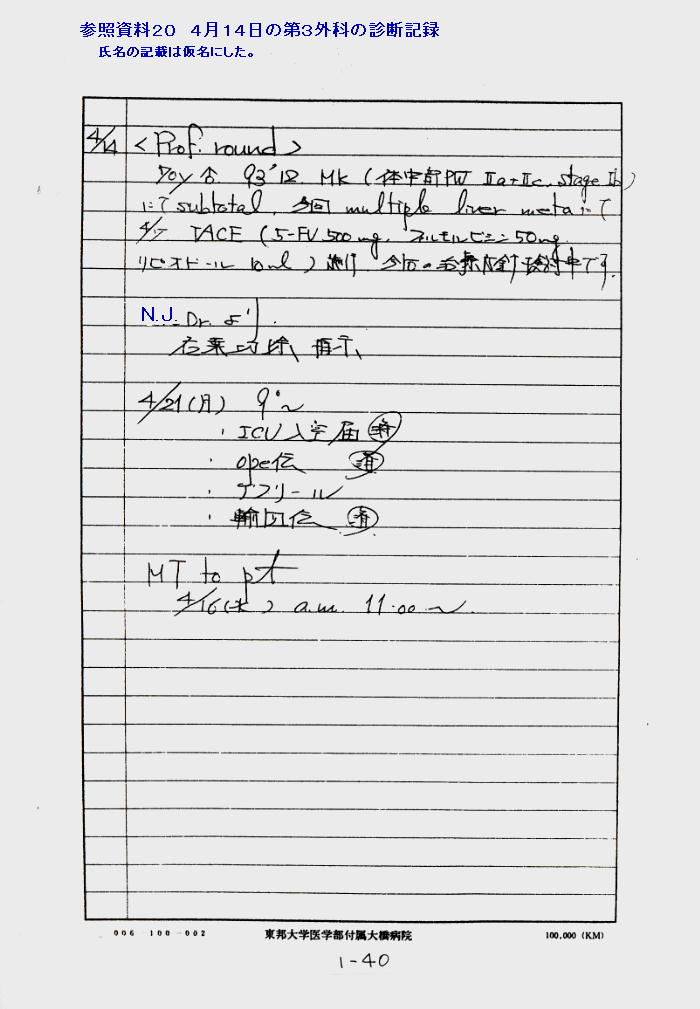 参照資料20 4月14日の第3外科の診断記録
氏名の記載は仮名にした。
4/14 <Prof. round>
70y 93'12 MK (体中部 IIa+IIc, stage Ib)
にて subtotal. 今回 multiple liver meta にて
TACE (5-FU 500mg, 50mg,
リピオドール 10ml) 施行 今后の治療方針検討中です.
N.J. Dr. より.
右葉切除、指示、
4/21(月) 9°~
・ICU入室届 済
・ope伝 済
・
・輸血伝 済
MT to pt
4/16(水) a.m. 11:00~
006-100-002 東邦大学医学部付属大橋病院 100,000 (KM)
1-40